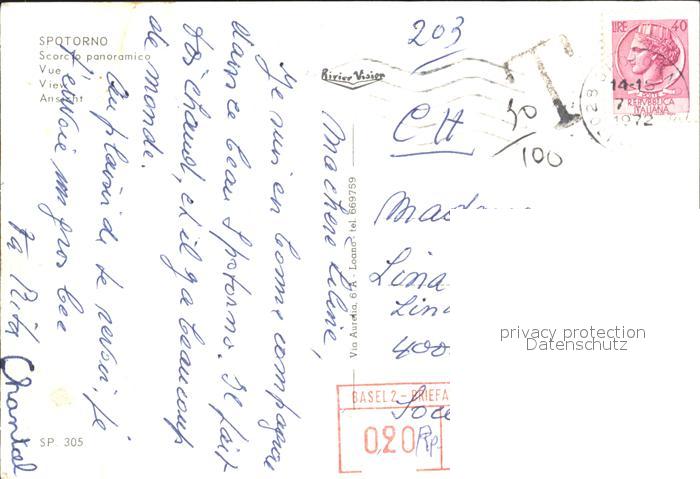 SPOTORNO
Scorcio panoramico
Vue
View
Ansicht
Ma chère Liline,
Je suis en bonne compagnie
dans ce beau Spotorno. Il fait
très chaud, et il y a beaucoup
de monde.
Au plaisir de te revoir, je
t'envoie un gros bec
Ta Rita
Chantal
SP. 305
Rivier Visior
Via Aurelia, 6/A - Loano - tel. 669759
203
T
30
/100
LIRE 40
REPVBBLICA
ITALIANA
14-15
7
1972
CH
Mad
Lina
Lin
400
privacy protection
Datenschutz
BASEL 2 - BRIEFA
0,20 Rp.